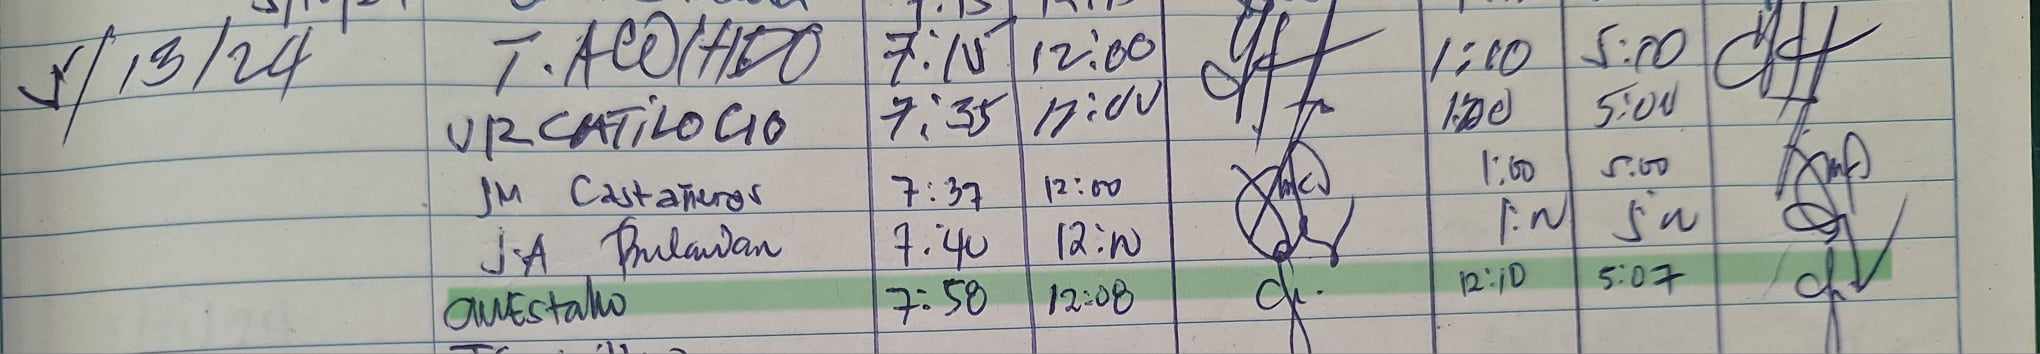 5/13/24 T. ACOHIDO 7:15 12:00 1:10 5:00
VR CATILOGIO 7:35 12:00 1:00 5:00
JM Castañeros 7:37 12:00 1:00 5:00
J.A Bulawan 7:40 12:00 1:00 5:00
7:58 12:08 12:10 5:07